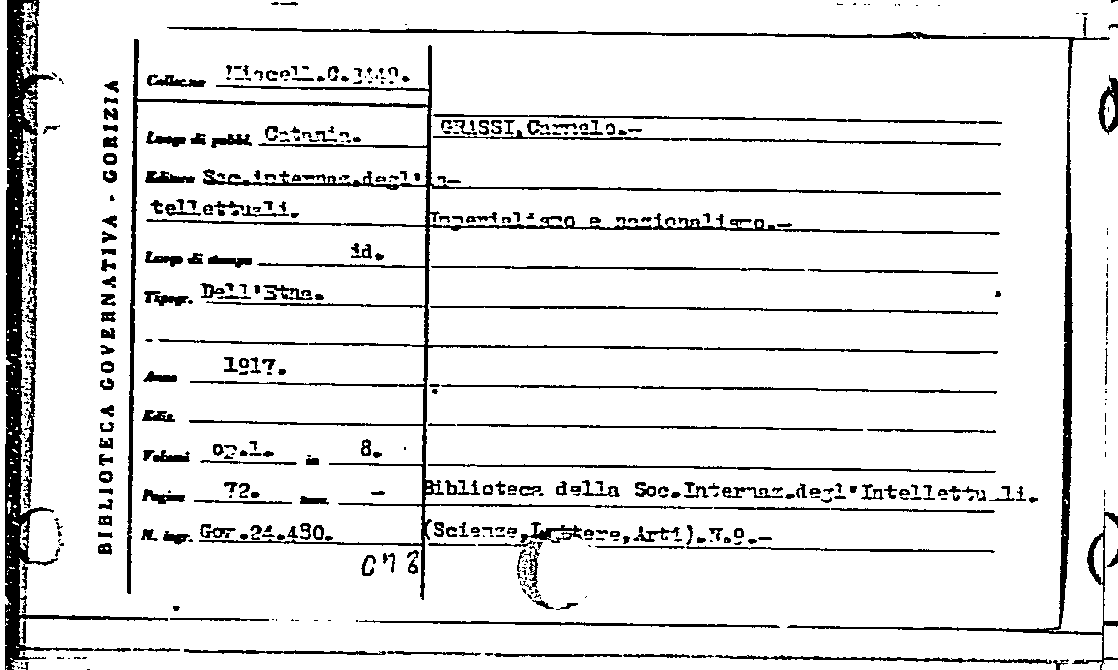 BIBLIOTECA GOVERNATIVA - GORIZIA
Collocaz Miscell.C.
Luogo di pubbl. Catania.
GRASSI,Carmelo.—
Editore Soc.internaz.degl'in—
tellettuali.
Imperialismo e nazionalismo.—
Luogo di stampa id.
Tipogr. Dell'Etna.
Anno 1917.
Ediz.
Volumi op.1. in 8.
Pagine 72. —
Biblioteca della Soc.Internaz.degl'Intellettuali.
N. ingr. Gor.24.480.
(Scienze,Lettere,Arti).N.9.—